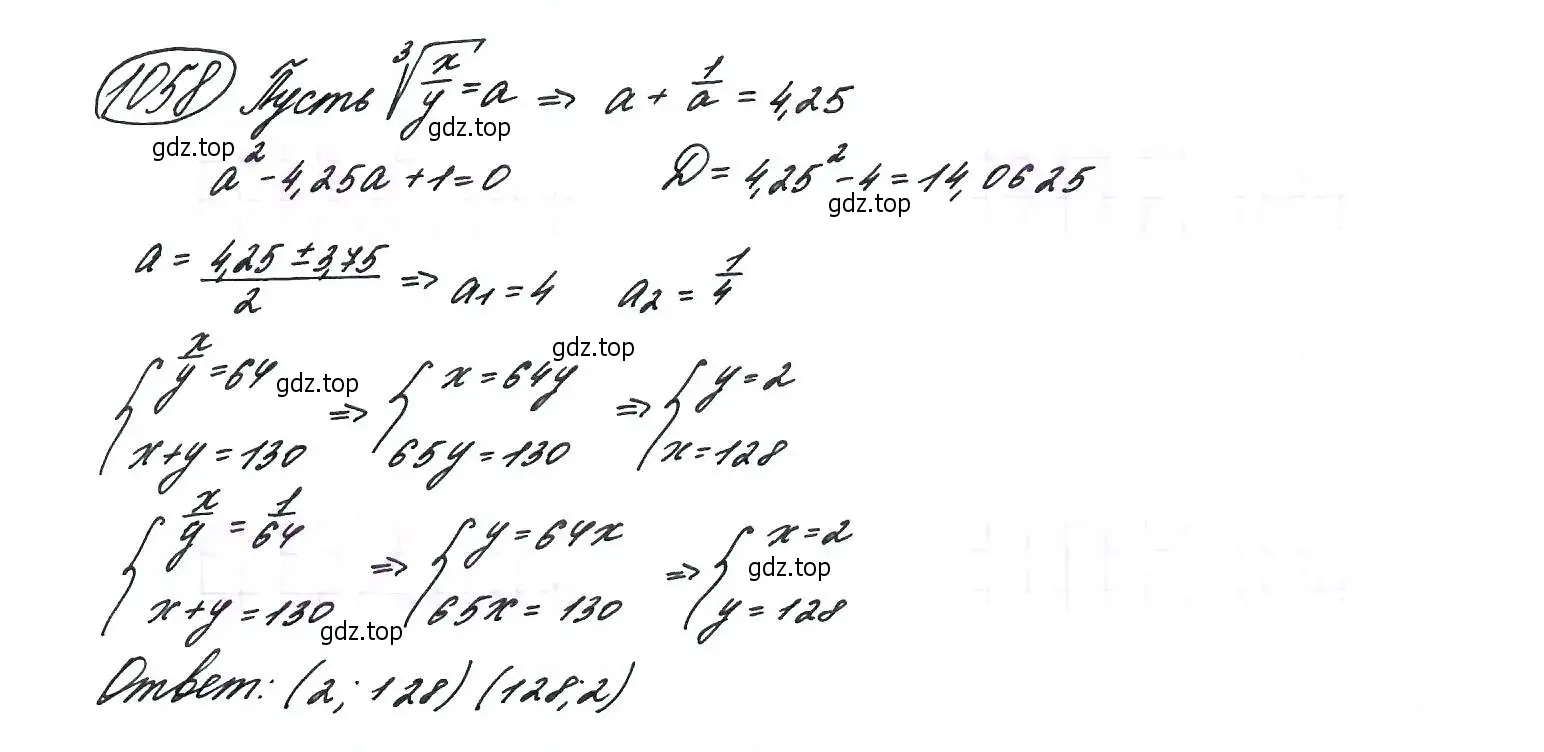 1058 Пусть ∛(x/y) = a => a + 1/a = 4,25
gdz.top gdz.top
a² - 4,25a + 1 = 0 D = 4,25² - 4 = 14,0625
gdz.top
a = (4,25 ± 3,75)/2 => a₁ = 4 a₂ = 1/4
gdz.top
{ x/y = 64 => { x = 64y => { y = 2
gdz.top
x + y = 130 65y = 130 x = 128
{ x/y = 1/64 => { y = 64x => { x = 2
gdz.top
x + y = 130 65x = 130 y = 128
gdz.top
Ответ: (2; 128) (128; 2)